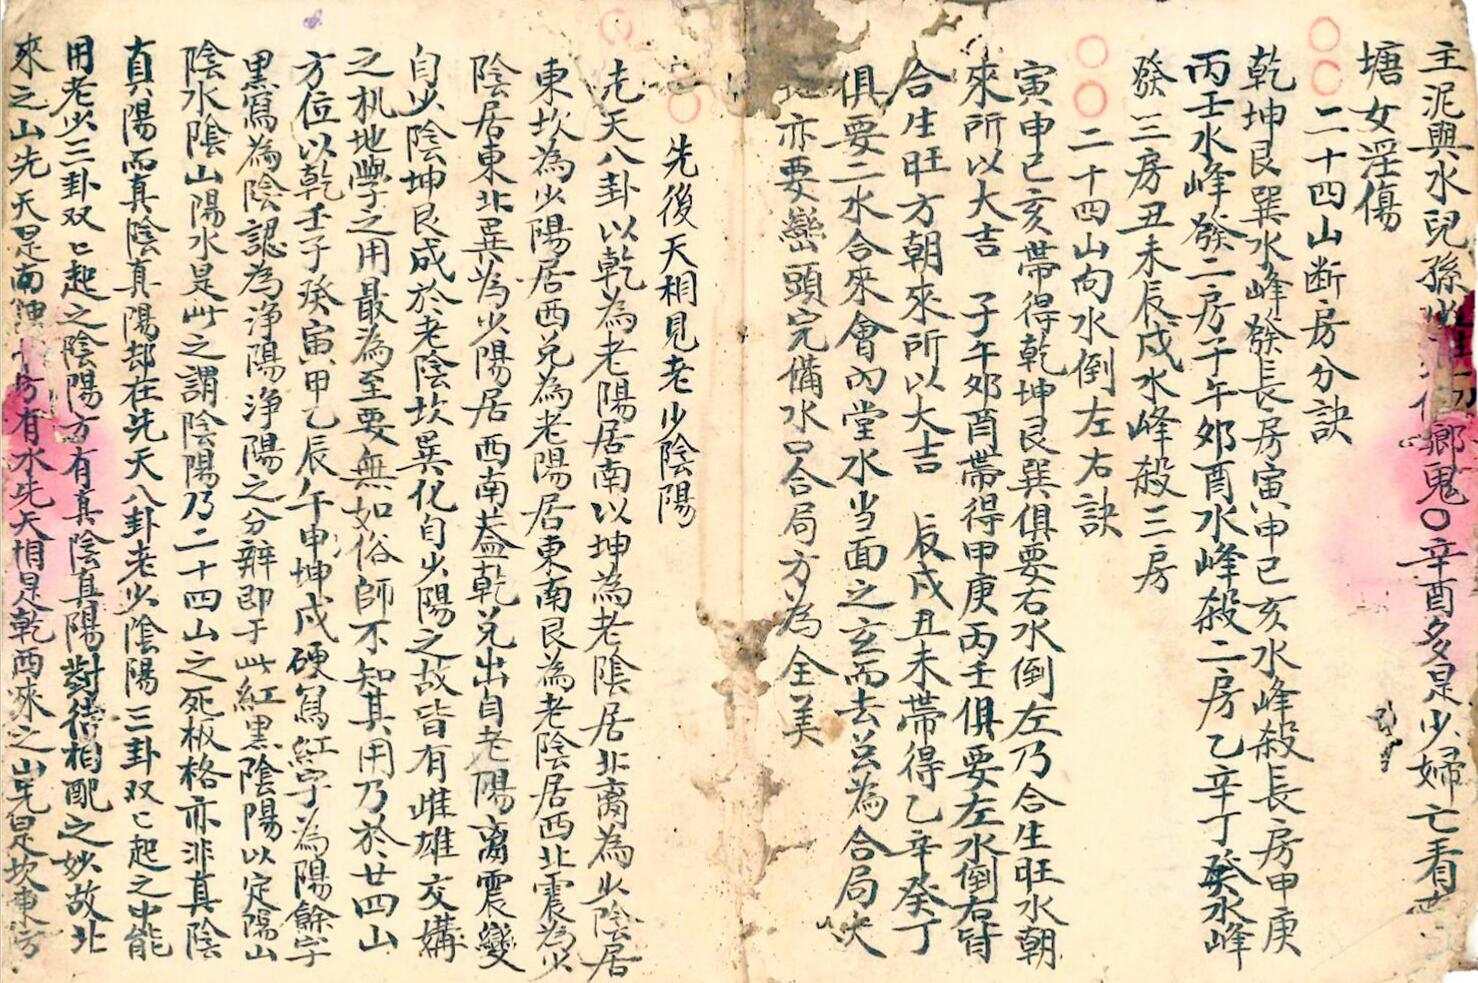 主泥與水兒孫鄉鬼〇辛酉多是少婦亡看
塘女淫傷
〇〇二十四山断房分訣
乾坤艮巽水峰發長房寅申巳亥水峰殺長房甲庚
丙壬水峰發二房子午夘酉水峰殺二房乙辛丁癸水峰
發三房丑未辰戍水峰殺三房
〇〇二十四山向水倒左右訣
寅申巳亥帶得乾坤艮巽俱要右水倒左乃合生旺水朝
來所以大吉 子午夘酉帶得甲庚丙壬俱要左水倒右皆
合生旺方朝來所以大吉 辰戍丑未帶得乙辛癸丁
俱要二水合來會內堂水当面之玄而去芸為合局
亦要巒頭完備水口合局方為全美
〇先後天相見老少陰陽
先天八卦以乾為老陽居南以坤為老陰居北离為少陰居
東坎為少陽居西兌為老陽居東南艮為老陰居西北震為少
陰居東北巽為少陽居西南蓋乾兌出自老陽离震變
自少陰坤艮成於老陰坎巽化自少陽之故皆有雌雄交媾
之机地學之用最為至要無如俗師不知其用乃於廿四山
方位以乾壬子癸寅甲乙辰午申坤戍硬寫紅字為陽餘字
黑寫為陰認為净陽净陽之分辨即于此紅黑陰陽以定陽山
陰水陰山陽水是此之謂陰陽乃二十四山之死板格亦非真陰
真陽而真陰真陽却在先天八卦老少陰陽三卦双〻起之中能
用老少三卦双〻起之陰陽方有真陰真陽對待相配之妙故北
來之山先天是南方有水先天相是乾西來之山先是坎東方